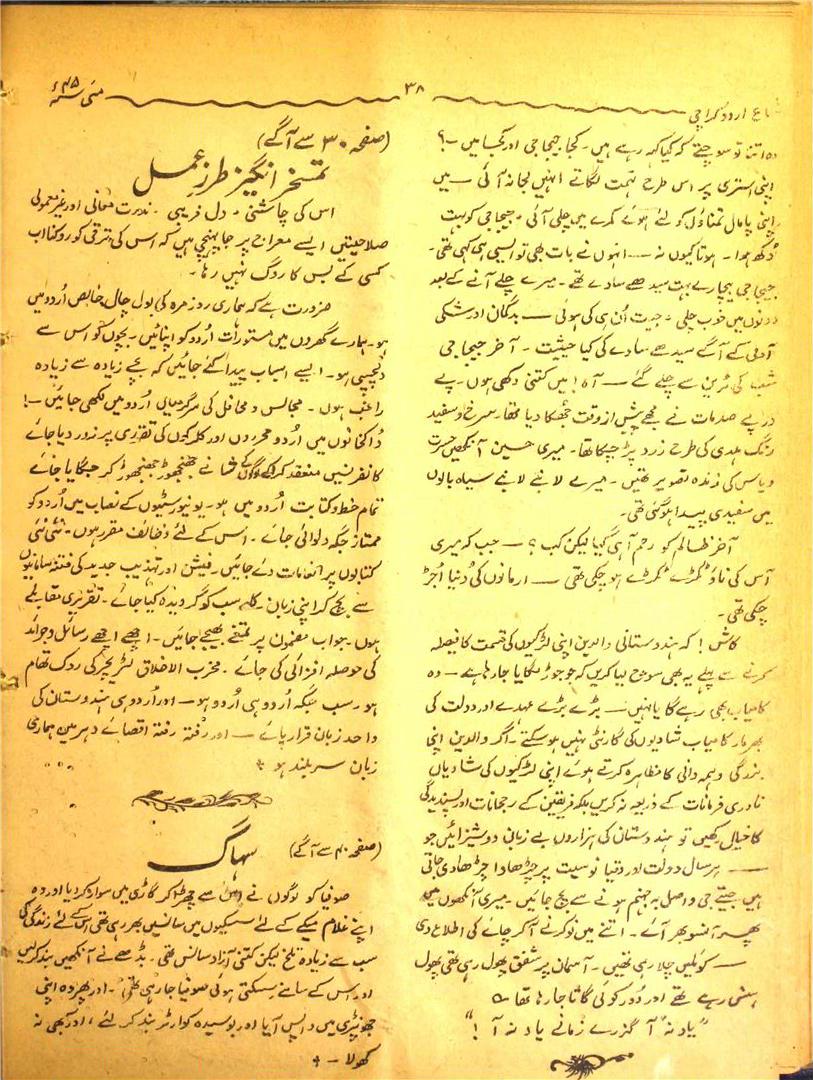 شعاع اردو کراچی
۳۸
مئی ۴۵ء
وہ اتنا تو سوچتے کہ کیا کہہ رہے ہیں۔ کجا جیجا جی اور کجا میں۔؟
اپنی استری پر اس طرح تہمت لگاتے انہیں لجا نہ آئی — میں
اپنی پامال تمناؤں کو لئے ہوئے کمرے میں چلی آئی۔ جیجا جی کو بہت
دُکھ ہوا۔ ہوتا کیوں نہ — انہوں نے بات بھی تو ایسی ہی کہی تھی۔
جیجا جی بیچارے بہت سیدھے سادے تھے۔ میرے چلے آنے کے بعد
دونوں میں خوب چلی۔ جیت اُن ہی کی ہوئی — بدگمان اور شکی
آدمی کے آگے سیدھے سادے کی کیا حیثیت۔ آخر جیجا جی
شب کی ٹرین سے چلے گئے — آہ! میں کتنی دکھی ہوں۔ پے
در پے صدمات نے مجھے پیش از وقت جھکا دیا تھا۔ سرخ و سفید
رنگ ہلدی کی طرح زرد پڑ چکا تھا۔ میری حسین آنکھیں حسرت
و یاس کی زندہ تصویر تھیں۔ میرے لانبے لانبے سیاہ بالوں
میں سفیدی پیدا ہو گئی تھی۔
آخر ظالم کو رحم آ ہی گیا لیکن کب؟ — جب کہ میری
آس کی ناؤ ٹکڑے ٹکڑے ہو چکی تھی — ارمانوں کی دُنیا اُجڑ
چکی تھی۔
کاش! کہ ہندوستانی والدین اپنی لڑکیوں کی قسمت کا فیصلہ
کرنے سے پہلے یہ بھی سوچ لیا کریں کہ جو جوڑ لگایا جا رہا ہے — وہ
کامیاب بھی رہے گا یا نہیں — بڑے بڑے عہدے اور دولت کی
بھرمار کامیاب شادیوں کی گارنٹی نہیں ہو سکتے۔ اگر والدین اپنی
بزرگی و ہمہ دانی کا مظاہرہ کرتے ہوئے اپنی لڑکیوں کی شادیاں
نادری فرمانات کے ذریعہ نہ کریں بلکہ فریقین کے رجحانات اور پسندیدگی
کا خیال رکھیں تو ہندوستان کی ہزاروں بے زبان دوشیزائیں جو
— ہر سال دولت اور دقیانوسیت پر چڑھاوا چڑھا دی جاتی
ہیں جیتے جی واصل بہ جہنم ہونے سے بچ جائیں۔ میری آنکھوں میں
پھر آنسو بھر آئے۔ اتنے میں نوکر نے آکر چائے کی اطلاع دی
— کوئلیں چلا رہی تھیں۔ آسمان پر شفق پھول رہی تھی پھول
ہنس رہے تھے اور دُور کوئی گاتا جا رہا تھا ؎
"یاد نہ آ گزرے زمانے یاد نہ آ!"
(صفحہ ۳۰ سے آگے)
تمسخر انگیز طرز عمل
اس کی چاشنی۔ دل فریبی۔ ندرت معانی اور غیر معمولی
صلاحیتیں ایسے معراج پر جا پہنچی ہیں کہ اس کی ترقی کو روکنا اب
کسی کے بس کا روگ نہیں رہا۔
ضرورت ہے کہ ہماری روز مرہ کی بول چال خالص اُردو میں
ہو۔ ہمارے گھروں میں مستورات اُردو کو اپنائیں۔ بچوں کو اس سے
دلچسپی ہو۔ ایسے اسباب پیدا کئے جائیں کہ بچے زیادہ سے زیادہ
راغب ہوں۔ مجالس و محافل کی سرگرمیاں اردو میں لکھی جائیں۔!
ڈاکخانوں میں اُردو محرروں اور کلرکوں کی تقرری پر زور دیا جائے
کانفرنسیں منعقد کر کے لوگوں کے شانے جھنجھوڑ جھنجھوڑ کر جگایا جائے
تمام خط و کتابت اُردو میں ہو۔ یونیورسٹیوں کے نصاب میں اُردو کو
ممتاز جگہ دلوائی جائے۔ اس کے لئے وظائف مقرر ہوں۔ نئی نئی
کتابوں پر انعامات دئے جائیں۔ فیشن اور تہذیب جدید کی فتنہ سامانیوں
سے بچ کر اپنی زبان کا سب کو گرویدہ کیا جائے۔ تقریری مقابلے
ہوں۔ جواب مضمون پر تمغے بھیجے جائیں۔ اچھے اچھے رسائل و جرائد
کی حوصلہ افزائی کی جائے۔ مخرب الاخلاق لٹریچر کی روک تھام
ہو۔ سب جگہ اُردو ہی اُردو ہو — اور اُردو ہی ہندوستان کی
واحد زبان قرار پائے — اور رفتہ رفتہ اقصائے دہر میں ہماری
زبان سر بلند ہو ٭
(صفحہ ۴۰ سے آگے)
سہاگ
صوفیا کو لوگوں نے اس سے چھڑا کر گاڑی میں سوار کر دیا اور وہ
اپنے غلام سکے کے لئے سسکیوں میں سانسیں بھر رہی تھی اس کے لئے زندگی کی
سب سے زیادہ تلخ لیکن کتنی آزاد سانس تھی۔ بڈھے نے آنکھیں بند کر لیں
اور اس کے سامنے سسکتی ہوئی صوفیا جا رہی تھی۔ اور پھر وہ اپنی
جھونپڑی میں واپس آیا اور بوسیدہ کواڑ بند کر لئے، اور کبھی نہ
کھولا۔ ٭